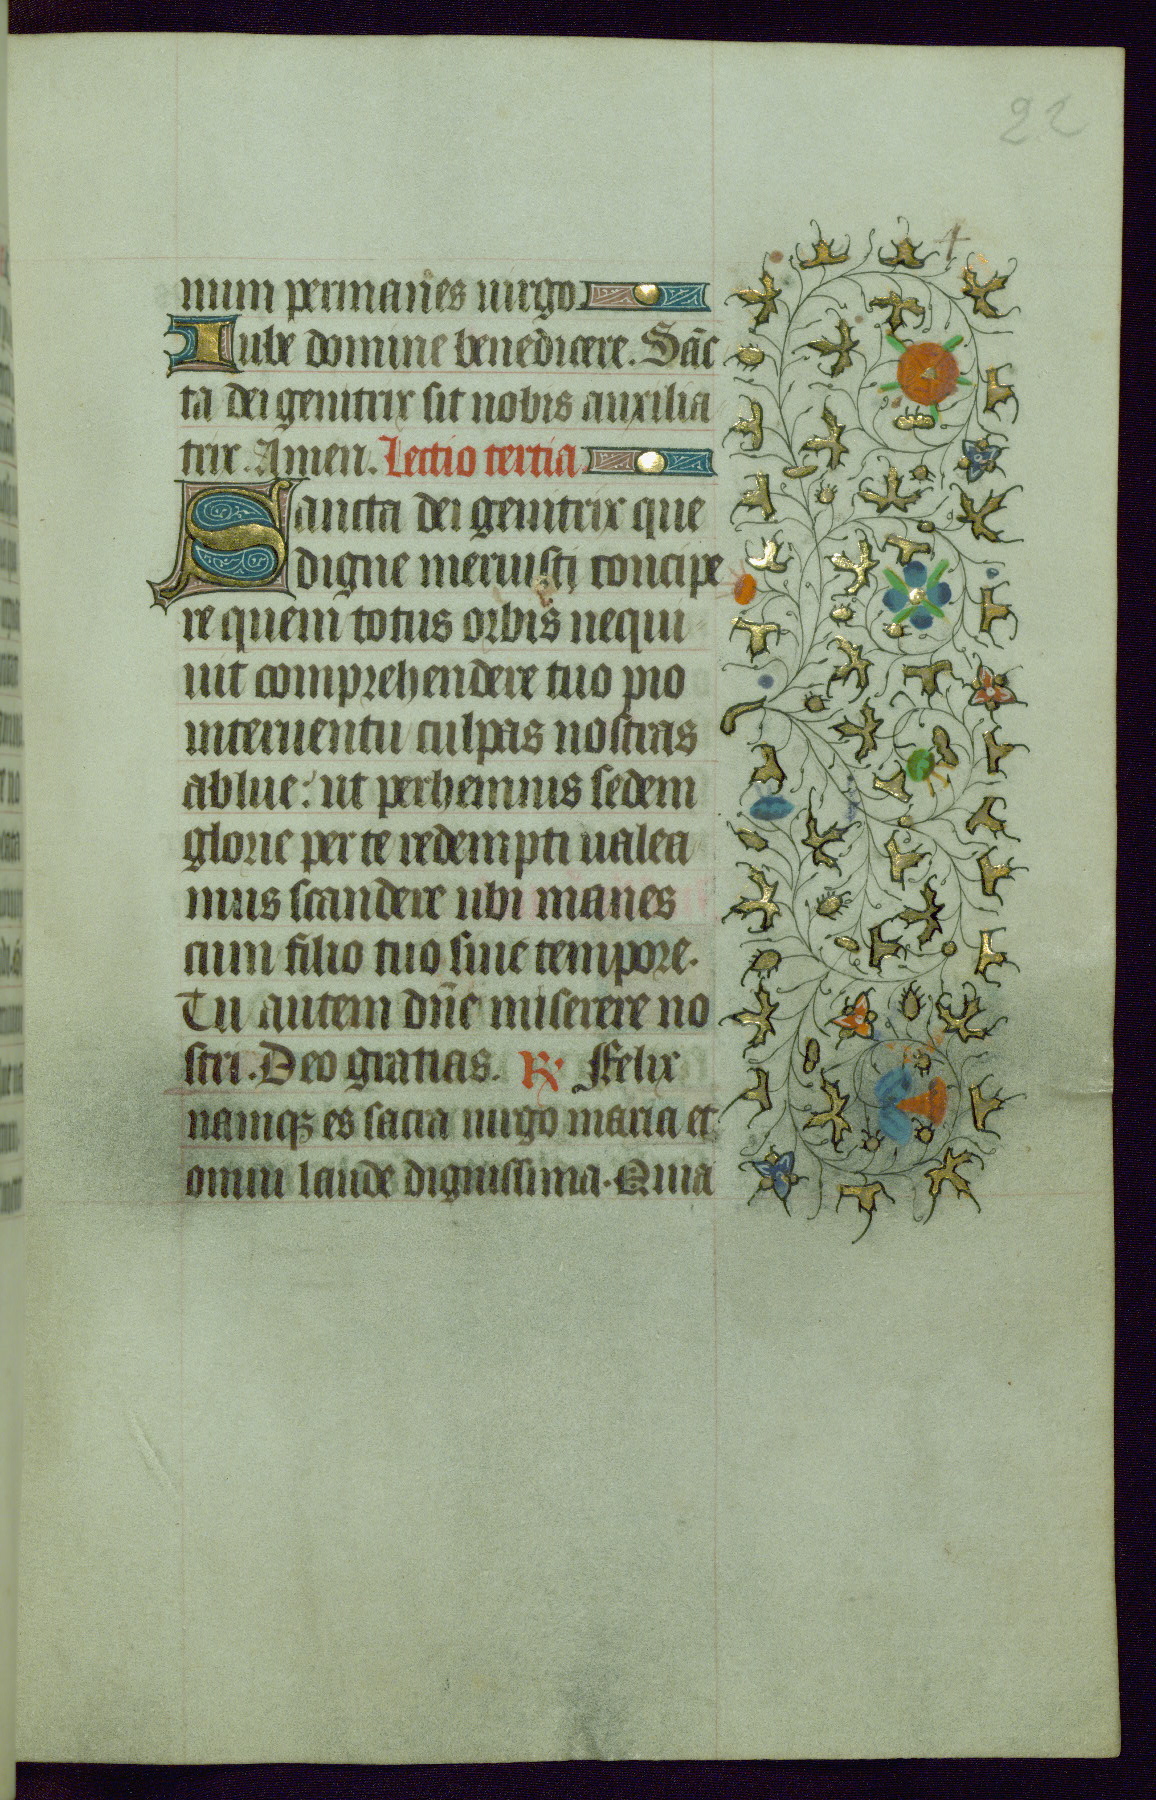 22
num permanēs uirgo
Iube domine benedicere. Sāc
ta dei genitrix sit nobis auxilia
trix. Amen. Lectio tertia
Sancta dei genitrix que
digne meruisti concipe
re quem totus orbis nequi
uit comprehendere tuo pio
interuentu culpas nostras
ablue: ut perhennis sedem
glorie per te redempti ualea
mus scandere ubi manes
cum filio tuo sine tempore.
Tu autem dn̄e miserere no
stri. Deo gratias. ℟ Felix
namqꝫ es sacra uirgo maria et
omni laude dignissima. Quia